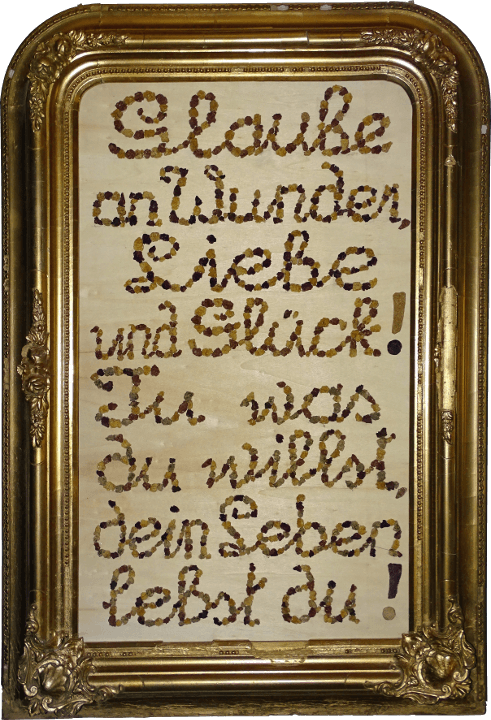 Glaube
an Wunder,
Liebe
und Glück!
Tu was
du willst,
dein Leben
lebst du!